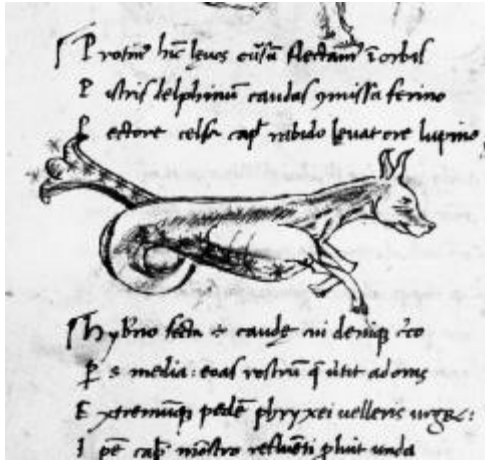 Protinꝰ hīc leuos cursū flectamꝰ ī orbis
Pistris delphinū caudas ꝯmissa ferino
Pectore celsa cap̄ rabido leuat ore lupino
hybrno secta ÷ caudę cui deniqꝫ
Ps media: eoas rostrū ad oras
Extremūqꝫ pedē phryxei uelleris urget:
cap̄ mōstro refluēti pluit unda